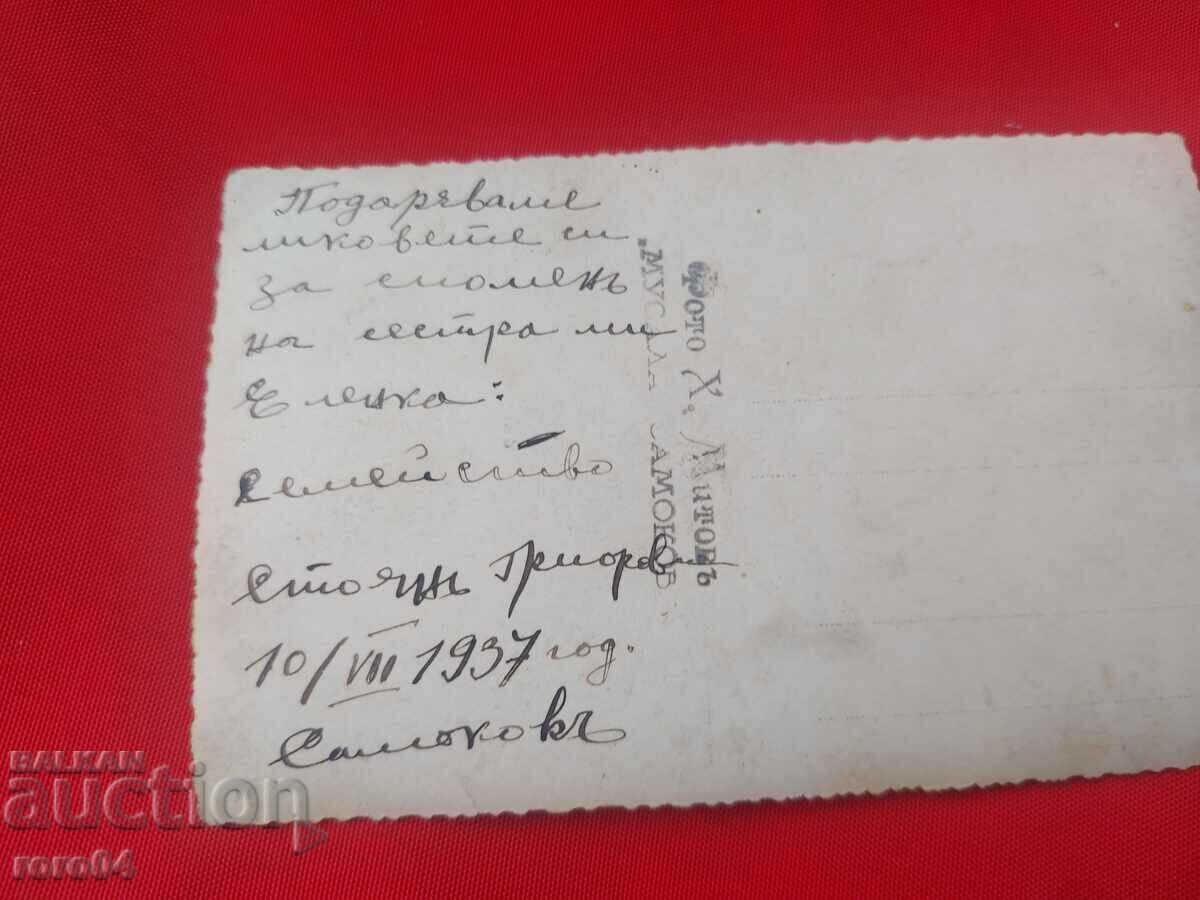 Подаряваме
ликовете си
за споменъ
на сестра ми
Еленка:
Семейство
Стоянъ Григорови
10/VIII 1937 год.
Самоковъ
Фото Х. Митовъ
„МУСАЛА САМОКОВ
BALKAN
auction
roro04